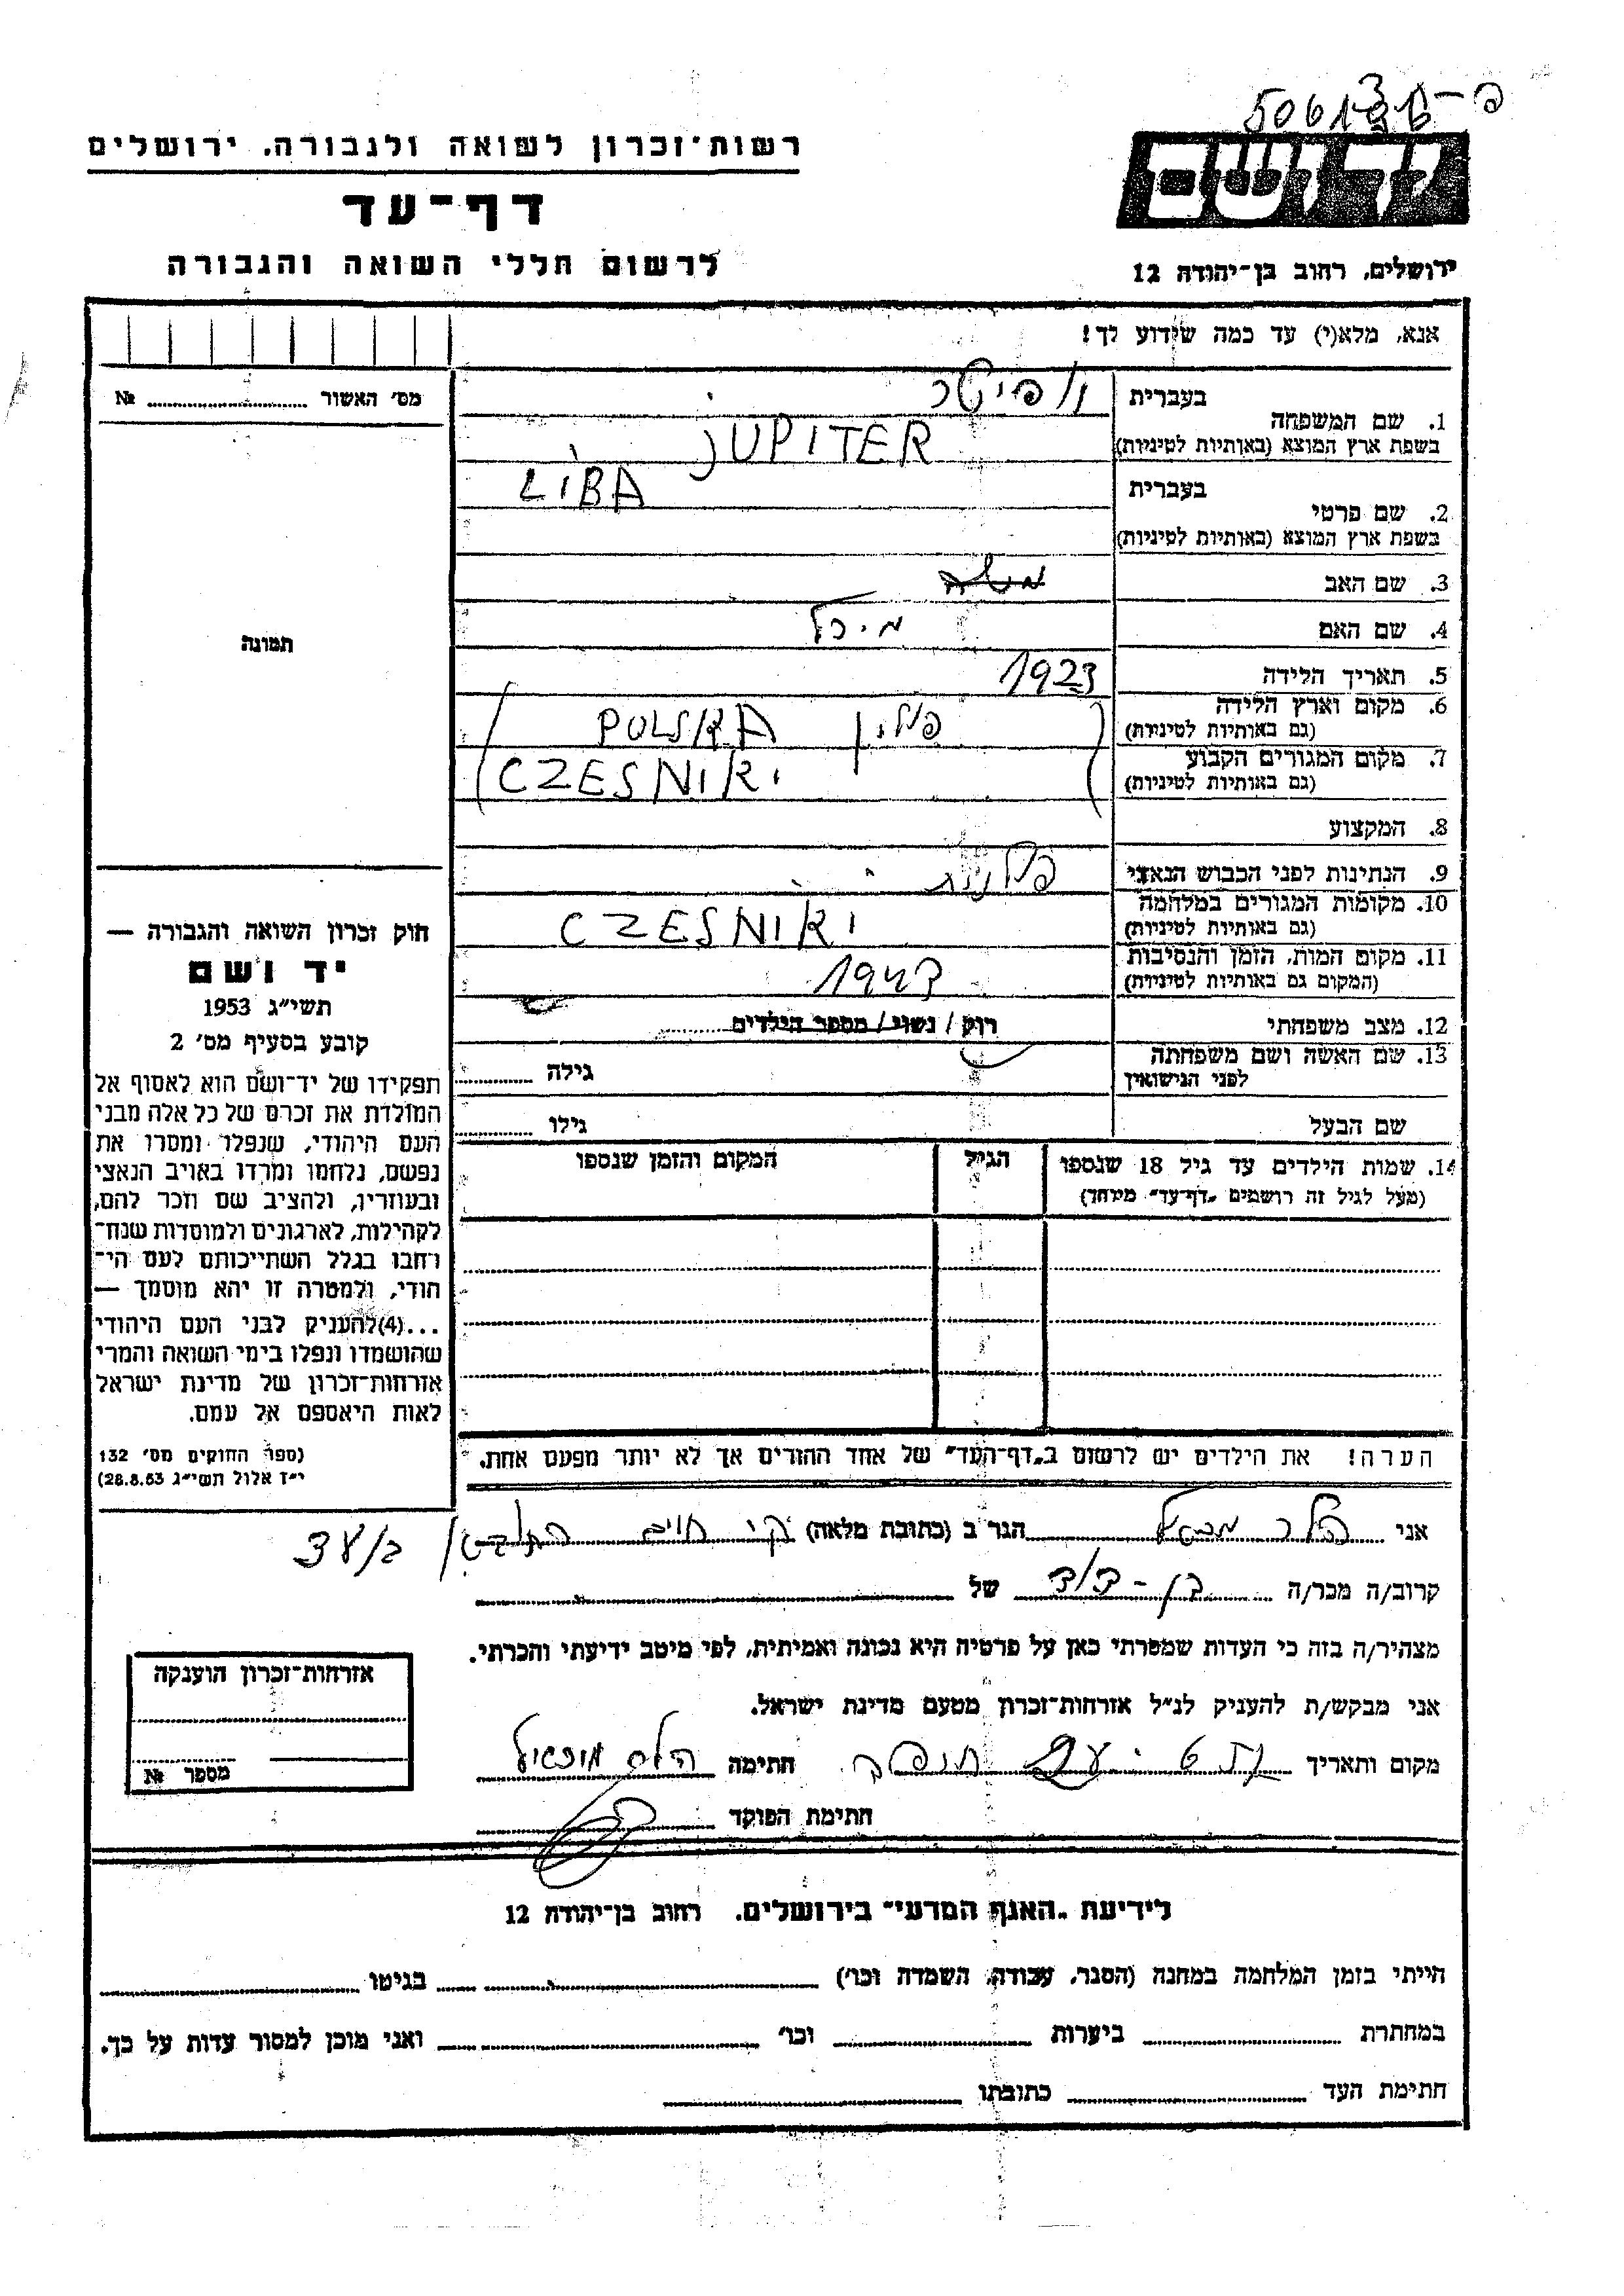 רשות־זכרון לשואה ולגבורה, ירושלים
דף־עד
לרשום חללי השואה והגבורה
יד ושם
ירושלים, רחוב בן־יהודה 12
אנא, מלא(י) עד כמה שידוע לך!
מס' האשור № ........
1. שם המשפחה
בעברית
בשפת ארץ המוצא (באותיות לטיניות)
JUPITER
2. שם פרטי
בעברית
LIBA
בשפת ארץ המוצא (באותיות לטיניות)
3. שם האב משה
4. שם האם מיכל
תמונה
5. תאריך הלידה 1923
6. מקום וארץ הלידה
(גם באותיות לטיניות)
פולין POLSKA
7. מקום המגורים הקבוע
(גם באותיות לטיניות)
CZESNIKI
8. המקצוע
9. הנתינות לפני הכבוש הנאצי פולנית
10. מקומות המגורים במלחמה
(גם באותיות לטיניות)
CZESNIKI
11. מקום המות, הזמן והנסיבות
(המקום גם באותיות לטיניות)
1943
12. מצב משפחתי רווק / נשוי / מספר הילדים ........
13. שם האשה ושם משפחתה
לפני הנישואין
גילה ........
שם הבעל גילו ........
14. שמות הילדים עד גיל 18 שנספו
(מעל לגיל זה רושמים „דף־עד" מיוחד)
הגיל
המקום והזמן שנספו
הערה! את הילדים יש לרשום ב„דף־העד" של אחד ההורים אך לא יותר מפעם אחת.
חוק זכרון השואה והגבורה —
יד ושם
תשי"ג 1953
קובע בסעיף מס' 2
תפקידו של יד־ושם הוא לאסוף אל
המולדת את זכרם של כל אלה מבני
העם היהודי, שנפלו ומסרו את
נפשם, נלחמו ומרדו באויב הנאצי
ובעוזריו, ולהציב שם וזכר להם,
לקהילות, לארגונים ולמוסדות שנח־
רחבו בגלל השתייכותם לעם הי־
הודי, ולמטרה זו יהא מוסמך —
...(4)להעניק לבני העם היהודי
שהושמדו ונפלו בימי השואה והמרי
אזרחות־זכרון של מדינת ישראל
לאות היאספם אל עמם.
(ספר החוקים מס' 132
י"ז אלול תשי"ג 28.8.53)
אני הלר הגר ב (כתובת מלאה) קר' חיים
קרוב/ה מכר/ה בן-דוד של ........
מצהיר/ה בזה כי העדות שמסרתי כאן על פרטיה היא נכונה ואמיתית, לפי מיטב ידיעתי והכרתי.
אני מבקש/ת להעניק לנ"ל אזרחות־זכרון מטעם מדינת ישראל.
מקום ותאריך חתימה
חתימת הפוקד
אזרחות־זכרון הוענקה
מספר №
לידיעת „האגף המדעי" בירושלים, רחוב בן־יהודה 12
הייתי בזמן המלחמה במחנה (הסגר, עבודה, השמדה וכו') ........ בגיטו ........
במחתרת ........ ביערות ........ וכו' ........ ואני מוכן למסור עדות על כך.
חתימת העד ........ כתובתו ........